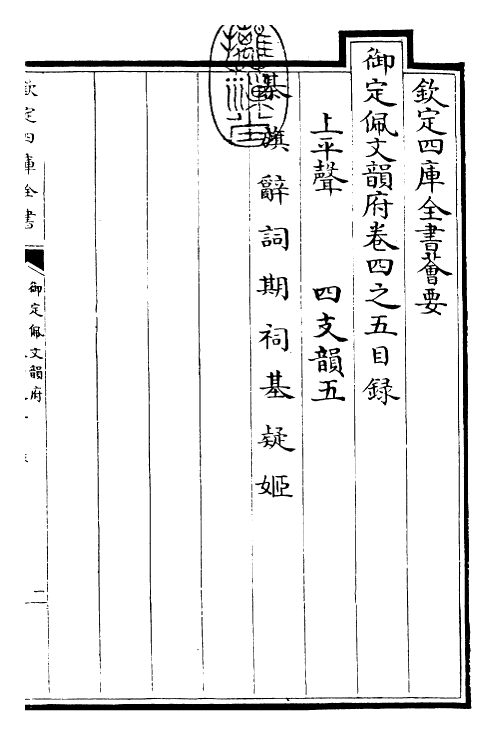 欽定四庫全書薈要
御定佩文韻府卷四之五目録
上平聲　四支韻五
棊旗辭詞期祠基疑姬
摛藻堂
欽定四庫全書
御定佩文韻府
二